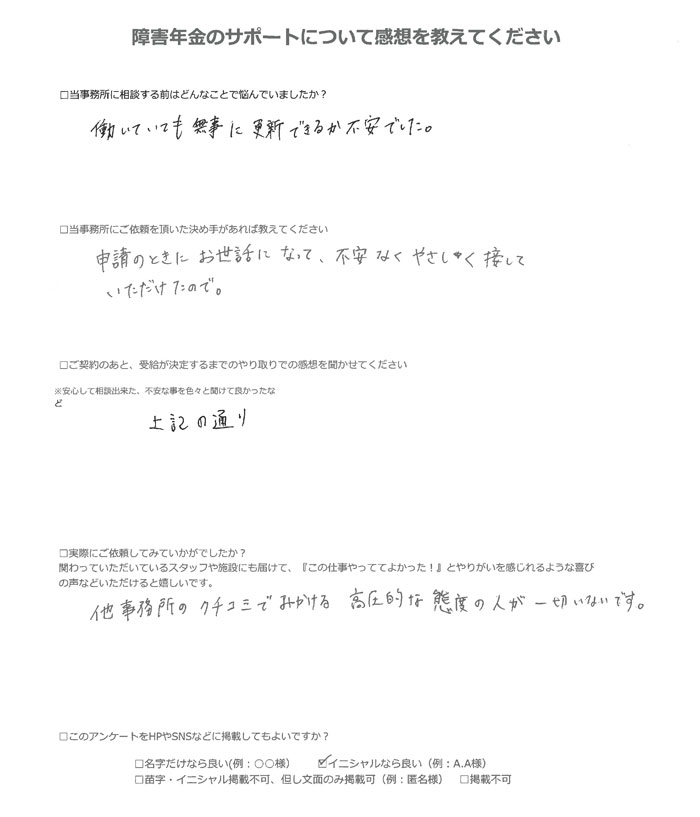 障害年金のサポートについて感想を教えてください
□当事務所に相談する前はどんなことで悩んでいましたか？
働いていても無事に更新できるか不安でした。
□当事務所にご依頼を頂いた決め手があれば教えてください
申請のときにお世話になって、不安なくやさしく接して
いただけたので。
□ご契約のあと、受給が決定するまでのやり取りでの感想を聞かせてください
※安心して相談出来た、不安な事を色々と聞けて良かったな
ど
上記の通り
□実際にご依頼してみていかがでしたか？
関わっていただいているスタッフや施設にも届けて、『この仕事やっててよかった！』とやりがいを感じれるような喜び
の声などいただけると嬉しいです。
他事務所のクチコミでみかける高圧的な態度の人が一切いないです。
□このアンケートをHPやSNSなどに掲載してもよいですか？
□名字だけなら良い(例：○○様） ☑イニシャルなら良い（例：A.A様）
□苗字・イニシャル掲載不可、但し文面のみ掲載可（例：匿名様） □掲載不可